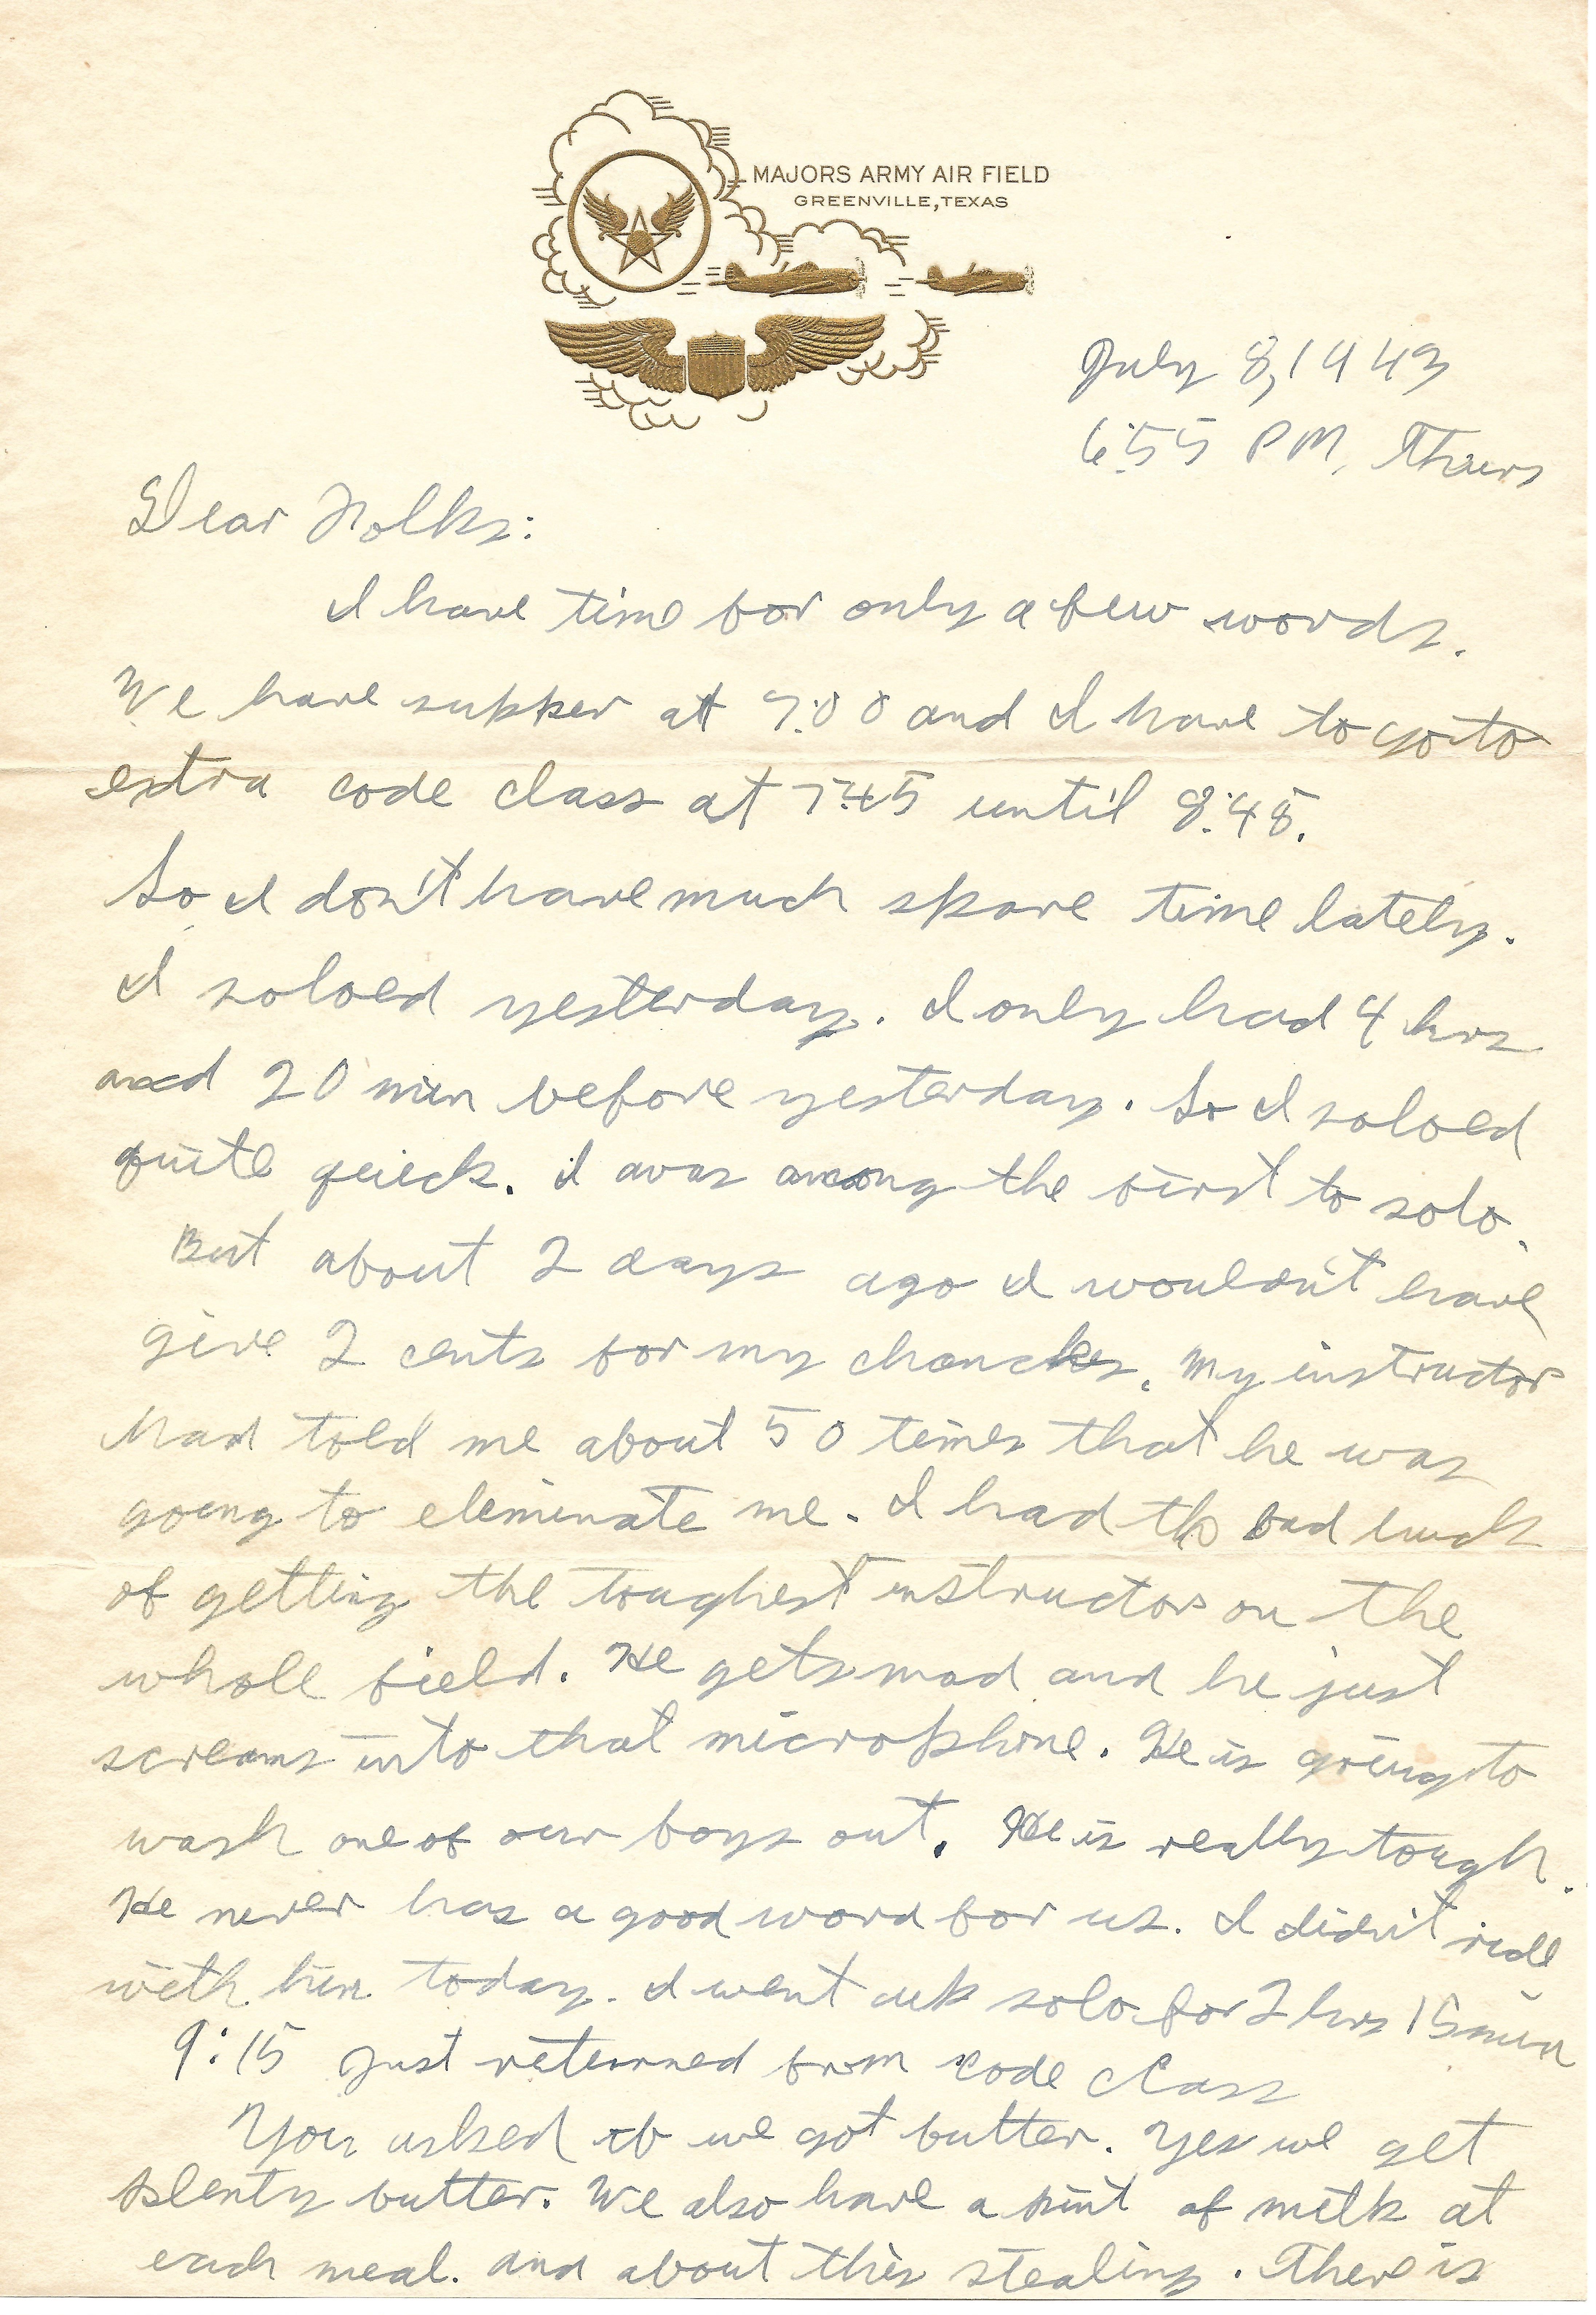 MAJORS ARMY AIR FIELD
GREENVILLE, TEXAS
July 8, 1943
6:55 PM, Thurs
Dear Folks:
I have time for only a few words.
We have supper at 7:00 and I have to go to
extra code class at 7:45 until 8:45.
So I don't have much spare time lately.
I soloed yesterday. I only had 4 hrs
and 20 min before yesterday. So I soloed
quite quick. I was among the first to solo.
But about 2 days ago I wouldn't have
give 2 cents for my chances. My instructor
had told me about 50 times that he was
going to eleminate me. I had the bad luck
of getting the toughest instructor on the
whole field. He gets mad and he just
screams into that microphone. He is going to
wash one of our boys out. He is really tough.
He never has a good word for us. I didn't ride
with him today. I went up solo for 2 hrs 15 min
9:15 Just returned from code class
You asked if we got butter. Yes we get
plenty butter. We also have a pint of milk at
each meal. And about this stealing. There is